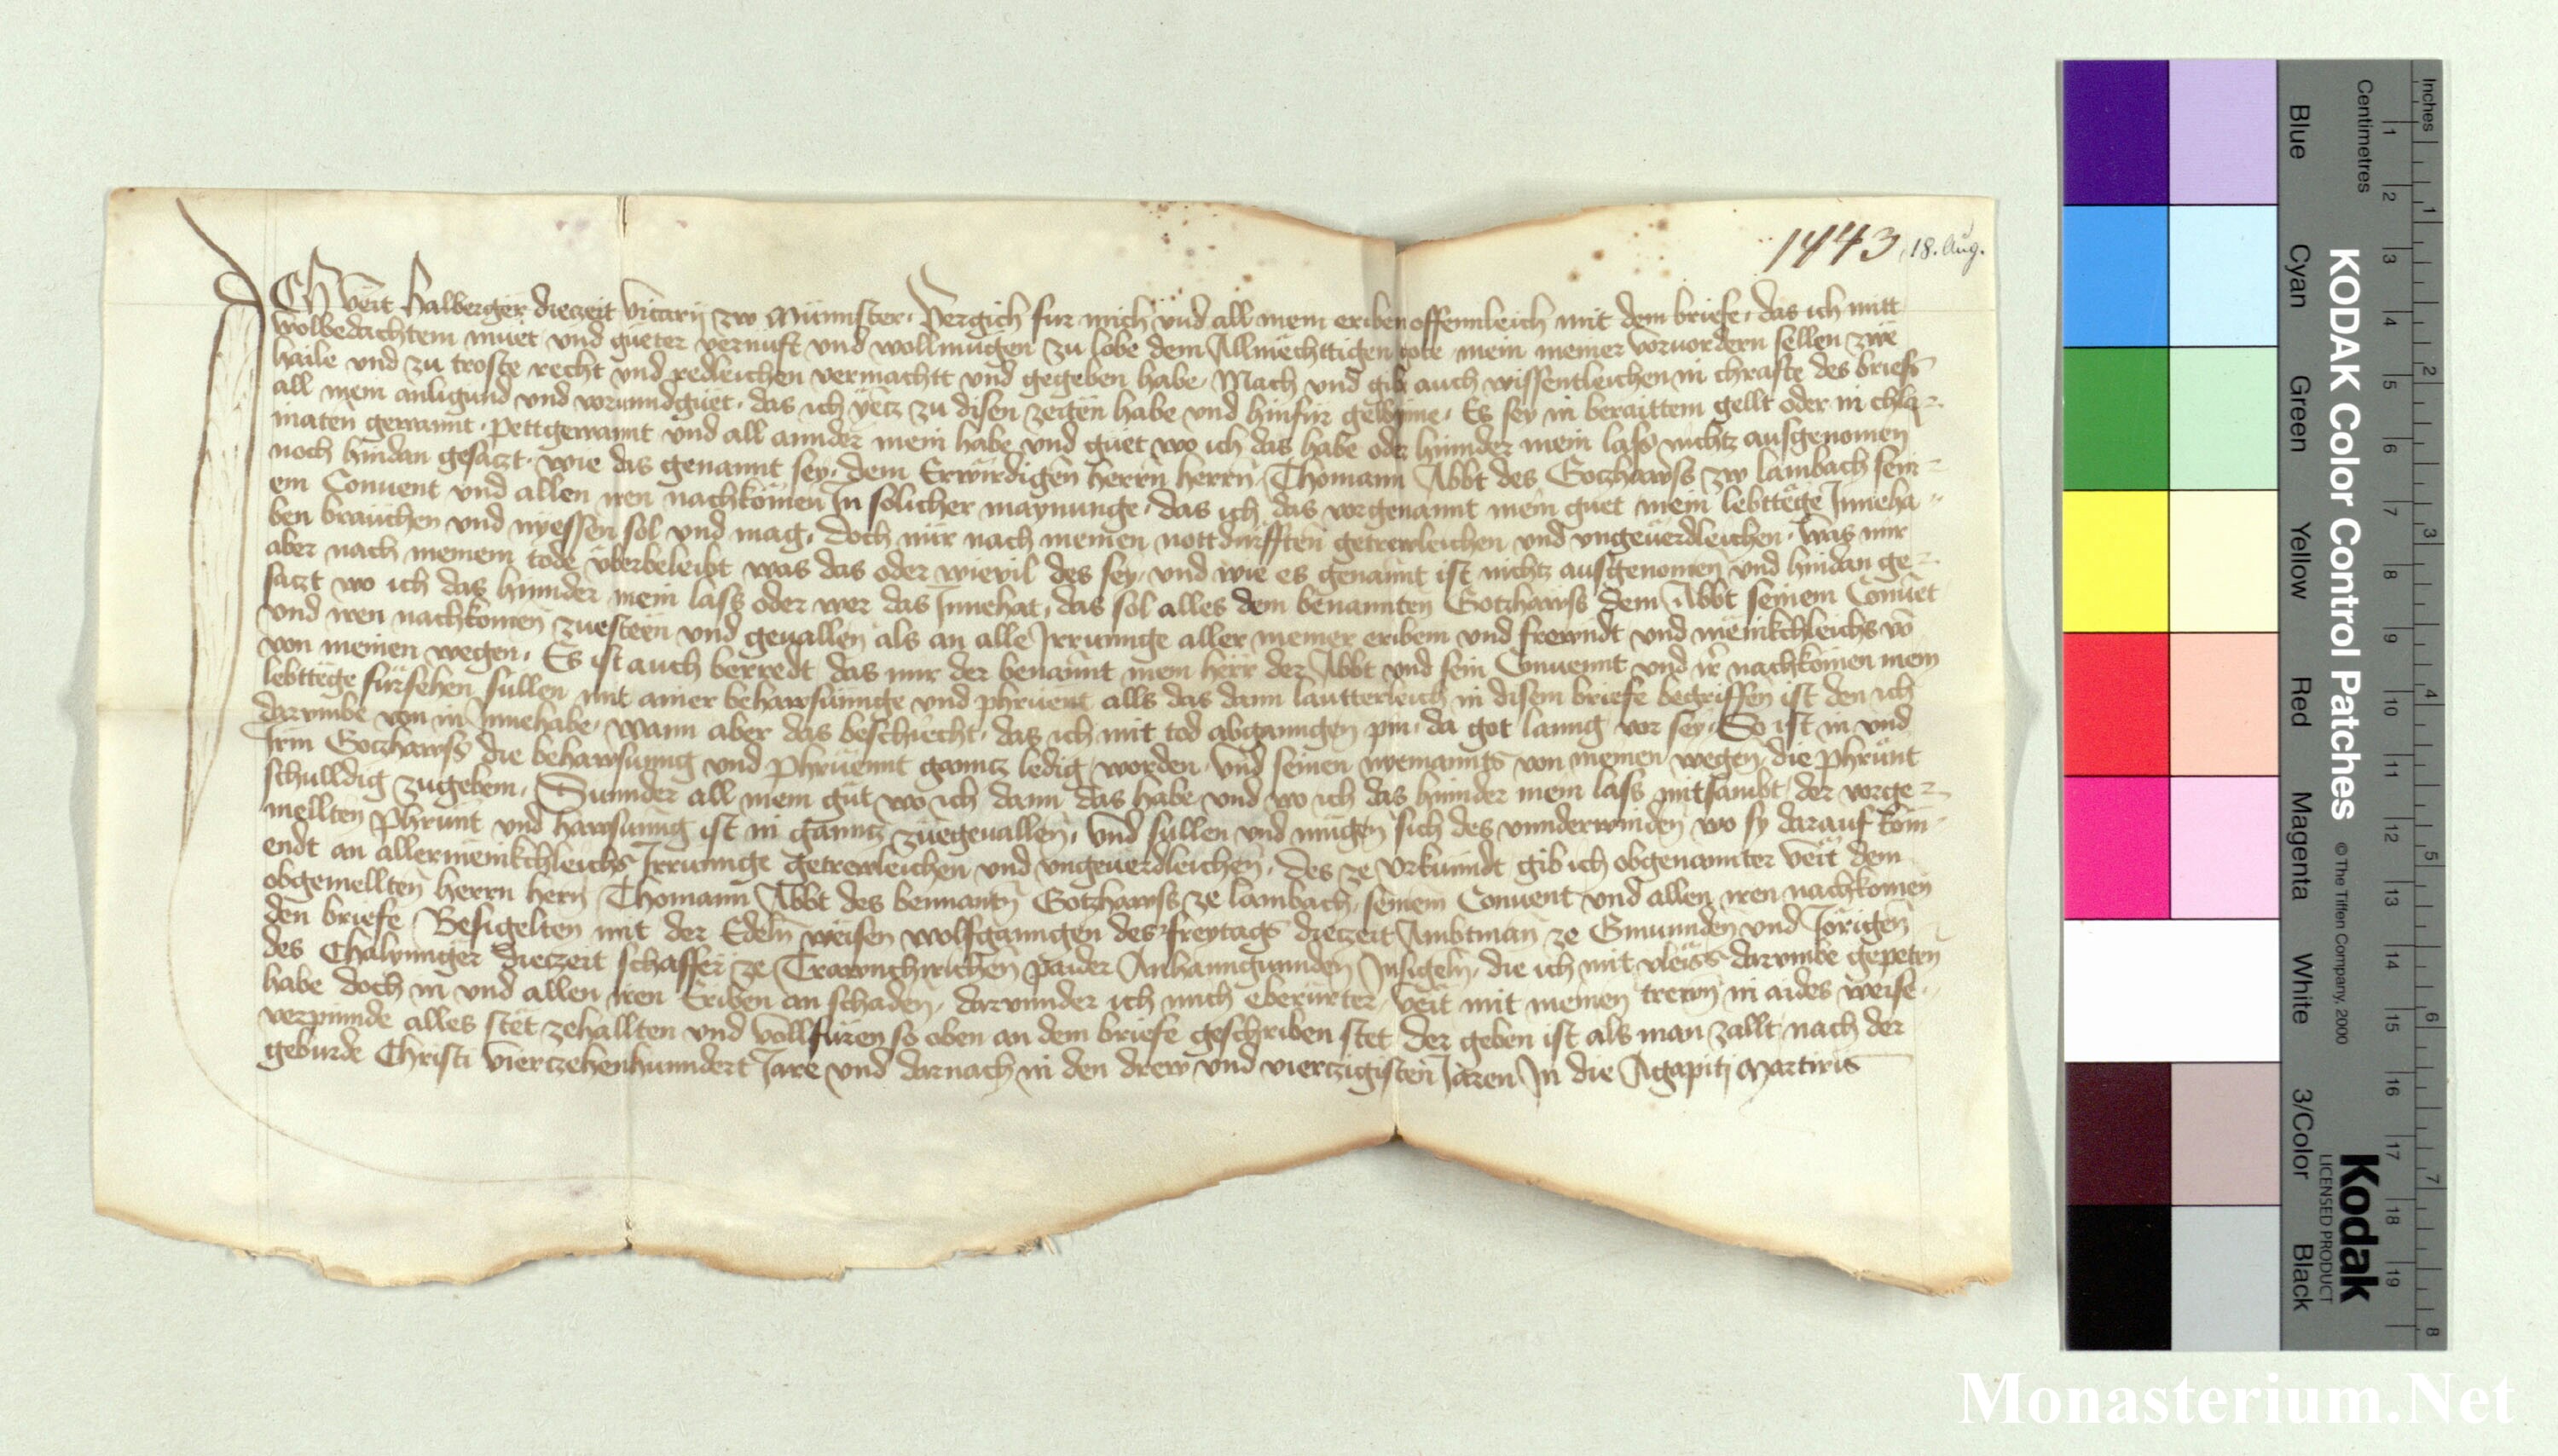 1443 18. Aug.
ICh veit halberger diezeit vicary zw Münnster. Vergich fur mich vnd all mein eriben offennleich mit dem briefe, das ich mitt
wolbedachtem müet vnd güeter vernüft vnd wollmügen zu lobe dem Allmëchttigen gote mein meiner voruordern sellen zwe
haile vnd zu troste recht vnd redleichen vermachtt vnd gegeben habe, Mach vnd gib auch wissentleichen in chrafte des briefs
all mein anligund vnd varunndguet, das ich yëtz zu disen zeiten habe vnd hinfür gewinne, Es sey in beraittem gellt oder in chla-
inaten gewannt, pettgewannt vnd all annder mein habe vnd guet wo ich das habe oder hinnder mein lass nichtz ausgenomen
noch hindan gesaczt, wie das genannt sey, dem Erwirdigen herrn herrn Thomann Abbt des Gotzhawss zw lambach sein-
em Conuent vnd allen iren nachkömen In solicher maynunge, das ich das vorgenannt mein guet mein lebttëge Inneha-
ben brauchen vnd nyessen sol vnd mag, doch nür nach meinen nottdurfften getrewleichen vnd vngeuërdleichen, Was mir
aber nach meinem tode vberbeleibt was das oder wieuil des sey, vnd wie es genannt ist nichtz ausgenomen vnd hindan ge-
saczt wo ich das hinnder mein lass oder wer das Innehat, das sol alles dem benannten Gotzhawss dem Abbt seinem Conuēt
vnd iren nachkömen zuesteen vnd geuallen als an alle Irrunnge aller meiner eriben vnd frewndt vnd mëinkchleichs vō
von meinen wegen, Es ist auch berredt das mir der benannt mein herr der Abbt vnd sein Conuennt vnd ir nachkömen mein
lebttëge fürsehen sullen mit ainer behawsunnge vnd phruent alls das dann lautterleich in disem briefe begriffen ist den ich
darumbe von in Innehabe, Wann aber das beschiecht, das ich mit tod abganngen pin, da got lanng vor sey, So ist in vnd
Irm Gotzhawss die behawsunng vnd phrüennt ganntz ledig worden, vnd seinen nyemannts von meinen wegen die phrünt
schulldig zugeben, Sunnder all mein güt wo ich dann das habe vnd wo ich das hinnder mein lass mitsambt der vorge-
mellten phrünt vnd hawsunng ist in ganntz züegeuallen, vnd sullen vnd mügen sich des vnnderwinden wo sy darauf köm-
endt an allermëinkchleichs Irrunnge getrewleichen vnd vngeuerdleichen, des ze vrkunndt gib ich obgenannter veit dem
obgemellten herrn hern Thomann Abbt des bennantn Gotzhawss ze lambach, seinem Conuent vnd allen iren nachkomen
den briefe Besigelten mit der Edeln weisen wolfganngen des freytags diezeit Ambtman ze Gmunnden vnd Jörigen
des Chalpinger diezeit schaffer ze Trawnchirichen paider Anhanngunnden Insigeln, die ich mit vleiss darumbe gepeten
habe doch in vnd allen iren Eriben an schaden, darunnder ich mich eberürter veit mit meinen trewn in aides weise
verpinnde alles stët zehallten vnd vollfüren so oben an dem briefe geschriben stet Der geben ist als man zallt nach der
geburde Christi vierczehenhunndert Jare vnd darnach in den drew vnd vierczigisten Jaren In die Agapiti Martiris
Inches
Centimetres
KODAK Color Control Patches
© The Tiffen Company, 2000
Kodak
LICENSED PRODUCT
Blue
Cyan
Green
Yellow
Red
Magenta
White
3/Color
Black
1 2 3 4 5 6 7 8 9 10 11 12 13 14 15 16 17 18 19
1 2 3 4 5 6 7 8
Monasterium.Net